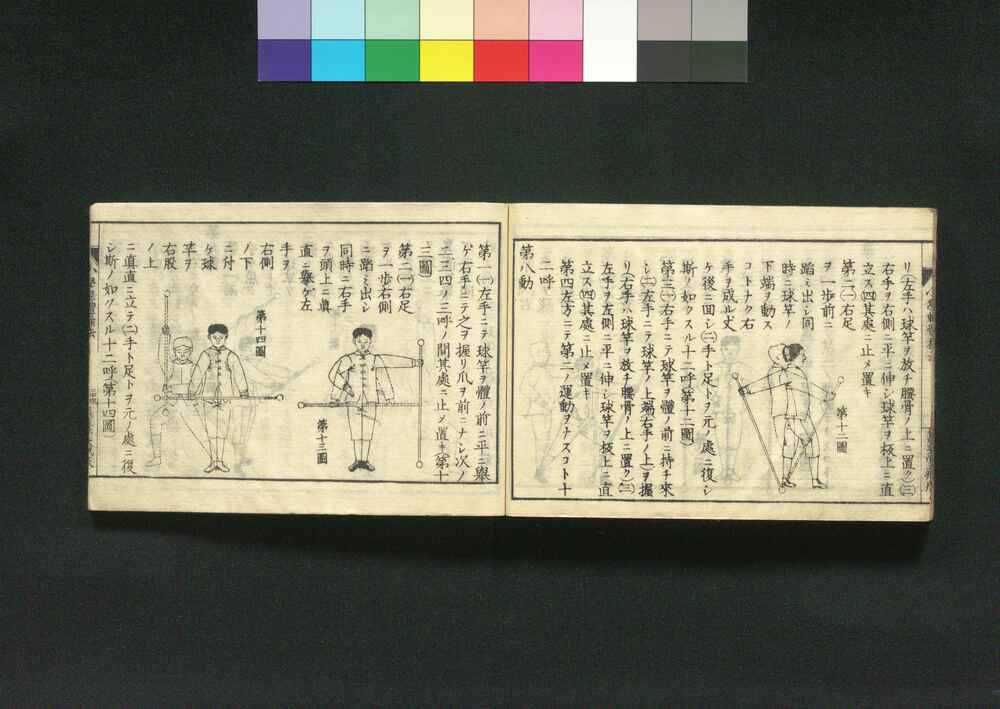 リ(左手ハ球竿ヲ放チ腰骨ノ上ニ置ク)(三)
右手ヲ右側ニ平ニ伸シ球竿ヲ板上ニ直
立ス(四)其處ニ止メ置キ
第二(一)右足
ヲ一歩前ニ
踏ミ出シ同
時ニ球竿ノ
下端ヲ動ス
コトナク右
手ヲ成ル丈
ケ後ニ回シ(二)手ト足トヲ元ノ處ニ復シ
斯ノ如クスル十二呼(第十二圖)
第三(一)右手ニテ球竿ヲ體ノ前ニ持チ來
シ(二)左手ニテ球竿ノ上端右手ノ上ヲ握
リ(右手ハ球竿ヲ放チ腰骨ノ上ニ置ク)(三)
左手ヲ左側ニ平ニ伸シ球竿ヲ板上ニ直
立ス(四)其處ニ止メ置キ
第四左方ニテ第二ノ運動ヲナスコト十
二呼
第八動
第十二圖
第一(一)左手ニテ球竿ヲ體ノ前ニ平ニ擧
ゲ右手ニテ之ヲ握リ爪ヲ前ニナシ次ノ
二三四ノ三呼ノ間其處ニ止メ置ク(第十
三圖)
第二(一)右足
ヲ一歩右側
ニ踏ミ出シ
同時ニ右手
ヲ頭上ニ眞
直ニ擧ゲ左
手ヲ
右側
ノ下
ニ付
ケ球
竿ヲ
右股
ノ上
ニ眞直ニ立テ(二)手ト足トヲ元ノ處ニ復
シ斯ノ如クスル十二呼(第十四圖)
第十三圖
第十四圖